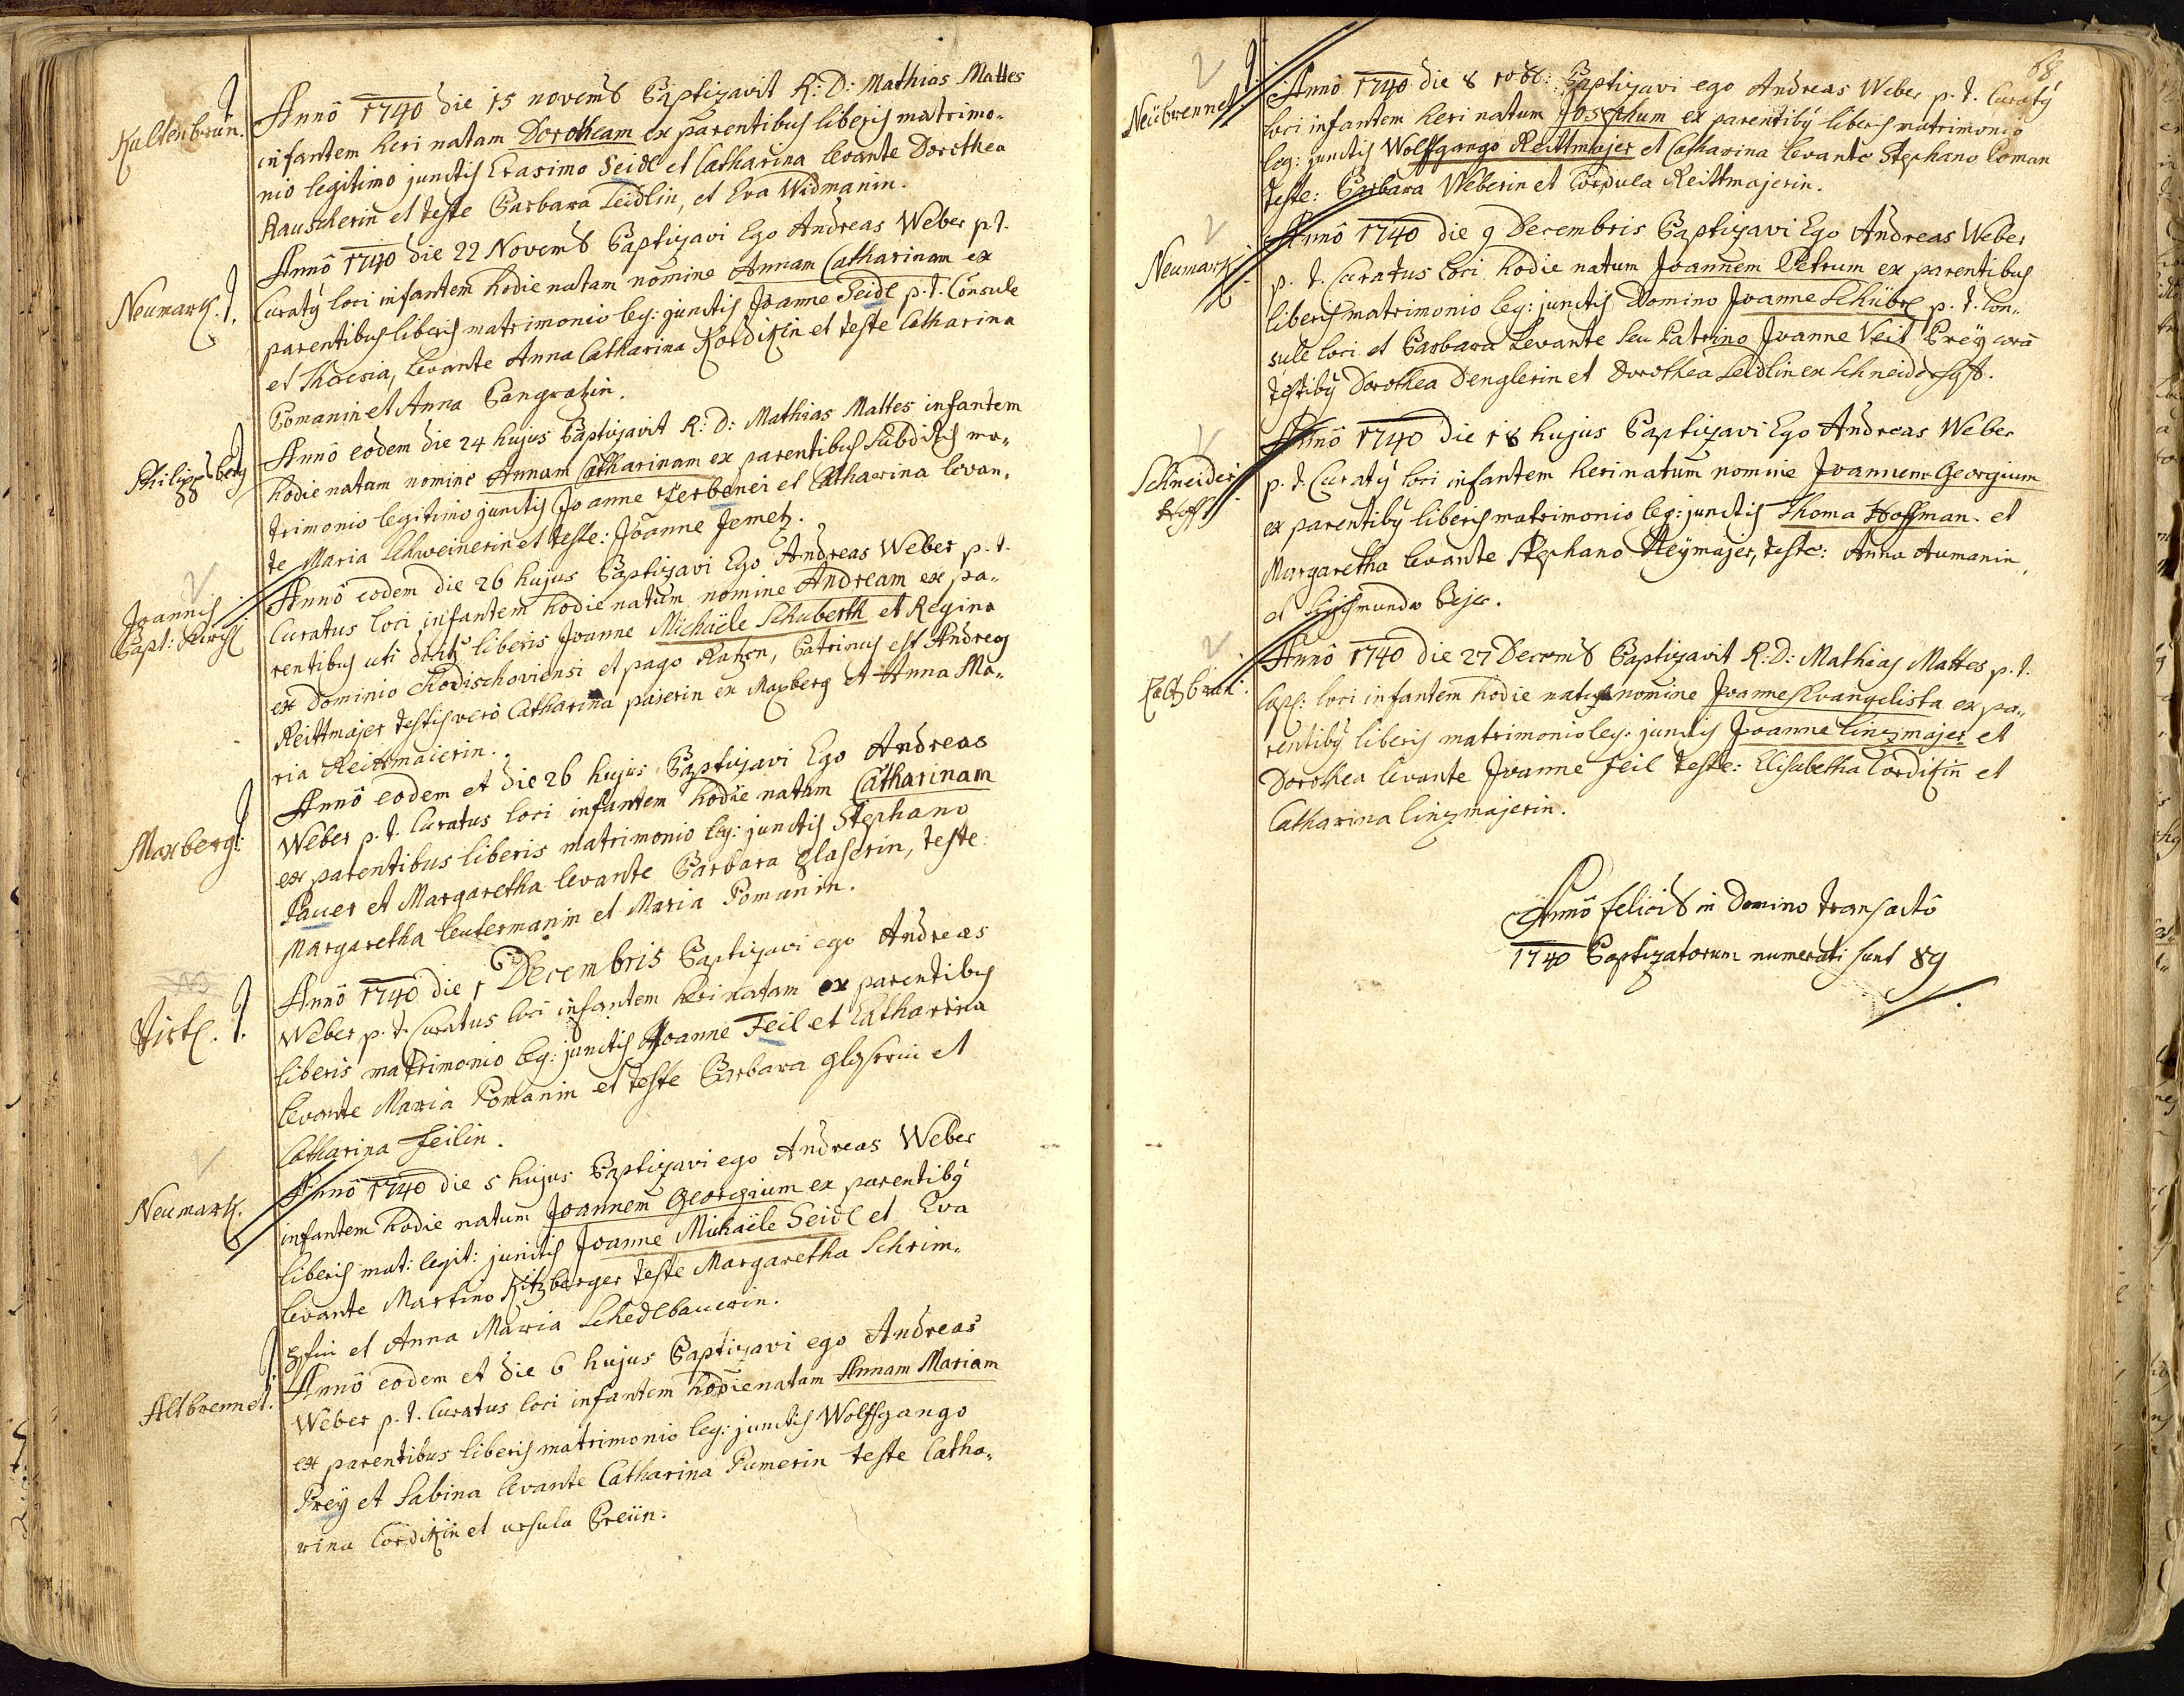 Kaltenbrun.
Annô 1740 die 15 novemb Baptizavit R: D: Mathias Mattes
infantem heri natam Dorotheam ex parentibus liberis matrimo„
nio legitimo junctis Erasimo Seidl et Catharina levante Dorothea
Rauscherin et teste Barbara Leidlin, et Eva Widmanin.
Neumark.
Annô 1740 die 22 Novemb Baptizavi Ego Andreas Weber p. t.
Curatq loci infantem hodie natam nomine Annam Catharinam ex
parentibus liberis matrimonio leg: junctis Joanne Seidl p. t. Consule
et Theresia, Levante Anna Catharina Kordikin et teste Catharina
Pomanin et Anna Pangratzin.
Philippsberg
Annô eodem die 24 hujus Baptizavit R: D: Mathias Mattes infantem
hodie natam nomine Annam Catharinam ex parentibus subditis ma„
trimonio legitimo junctis Joanne Zerbenei et Catharina levan„
te Maria Schweinerin et teste: Joanne Jemetz.
Joannis
Bapt:
Annô eodem die 26 hujus Baptizavi Ego Andreas Weber p. t.
Curatus loci infantem hodie natum nomine Andream ex pa„
rentibus uti liberis Joanne Michaële Schuberth et Regina
ex Dominio Chodischoviensi et pago Ratzen, Patrinus est Andreas
Reittmajer testis verò Catharina paierin ex Maxberg et Anna Ma„
ria Reittmaierin.
Maxberg:
Annô eodem et die 26 hujus Baptizavi Ego Andreas
Weber p. t. Curatus loci infantem hodie natam Catharinam
ex parentibus liberis matrimonio leg: junctis Stephano
Pauer et Margaretha levante Barbara glaserin, teste:
Margaretha leutermanin et Maria Pomanin.
Virtl.
Annô 1740 die 1 Decembris Baptizavi ego Andreas
Weber p. t. Curatus loci infantem heri natam ex parentibus
liberis matrimonio leg: junctis Joanne Feil et Catharina
levante Maria Pomanin et teste Barbara glaserin et
Catharina feilin.
Neumark.
Annô 1740 die 5 hujus Baptizavi ego Andreas Weber
infantem hodie natum Joannem Georgium ex parentibq
liberis mat: legit: junctis Joanne Michaële Seidl et Eva
levante Martino Kitzberger teste Margaretha Schrim„
pfin et Anna Maria Schedlbauerin.
Altbrennet.
Annô eodem et die 6 hujus Baptizavi ego Andreas
Weber p. t. Curatus loci infantem hodie natam Annam Mariam
ex parentibus liberis matrimonio leg: junctis Wolffgango
Preÿ et Sabina levante Catharina Pumerin teste Catha„
rina Cordikin et ursula Breiin:
68
Neübrennet
Annô 1740 die 8 10b: Baptizavi ego Andreas Weber p. t. Curatq
loci infantem heri natum Josephum ex parentibq liberis matrimonio
leg: junctis Wolffgango Reittmajer et Catharina levante Stephano Poman
teste: Barbara Weberin et Cordula Reittmajerin.
Neumark
Annô 1740 die 9 Decembris Baptizavi Ego Andreas Weber
p. t. Curatus loci hodie natum Joannem Petrum ex parentibus
liberis matrimonio leg: junctis Domino Joanne Schübel p. t. Con„
sule loci et Barbara Levante seu Patrino Joanne Veit Preÿ corã
testibq Dorothea Denglerin et Dorothea Leidlin ex Schneiderhoff.
Schneider
Hoff
Annô 1740 die 18 hujus Baptizavi Ego Andreas Weber
p. t. Curatq loci infantem heri natum nomine Joannem Georgium
ex parentibq liberis matrimonio leg: junctis Thoma Hoffman et
Margaretha levante Stephano Steÿmajer, teste: Anna Aumanin,
et Sigismundo Bejer.
Kaltbrun:
Annô 1740 die 27 Decemb Baptizavit R: D: Mathias Mattes p. t.
Capl: loci infantem hodie natum nomine Joanne Evangelista ex pa„
rentibq liberis matrimonio leg: junctis Joanne linzmajer et
Dorothea levante Joanne Feil teste: Elisabetha Cordikin et
Catharina linzmajerin.
Annô felicib in Domino transactô
1740 Baptizatorum numerati sunt 89